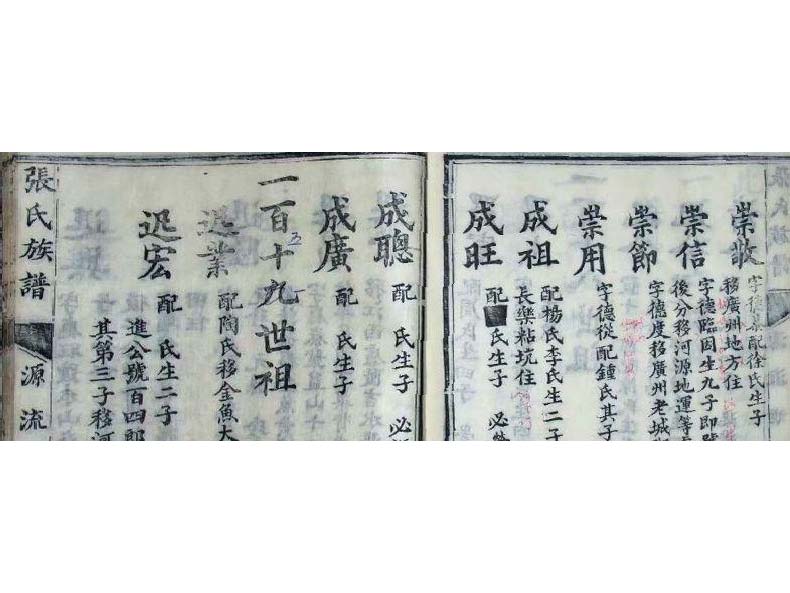 崇敬
字德 配徐氏生子
移廣州地方住
崇信
字德臨因生九子即
後分移河源地運等
崇節
字德度移廣州老城
崇用
字德從配鍾氏其子
成祖
配楊氏李氏生二子
長樂粘坑住
成旺
配 氏生子 必
成聰
配 氏生子 必
成廣
配 氏生子
一百十九世祖
五
退業
配陶氏移金魚大
迅宏
配 氏生二子
進公號百四郎
其第三子移河
張氏族譜
源流